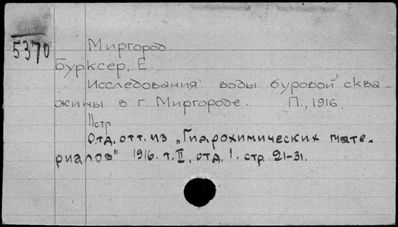 5370
Миргород.
Бурксер, Е.
Исследования воды буровой сква-
жины в г. Миргороде. П., 1916.
11 стр.
Отд. отт. из "Гидрохимических мате-
риалов" 1916. т. II, отд. 1. стр. 21-31.